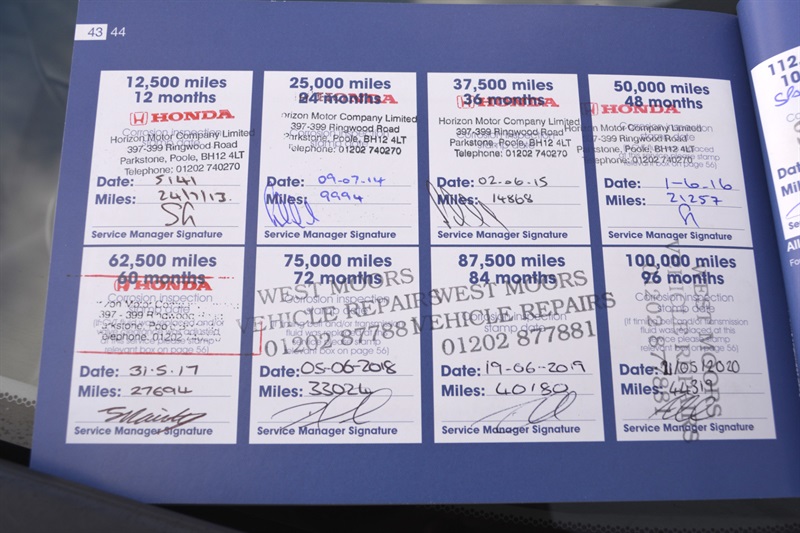 43 44
12,500 miles
12 months
HONDA
Corrosion inspection
Horizon Motor Company Limited
397-399 Ringwood Road
Parkstone, Poole, BH12 4LT
Telephone: 01202 740270
Date: 5141
Miles: 24/7/13.
Service Manager Signature
25,000 miles
24 months
HONDA
Horizon Motor Company Limited
397-399 Ringwood Road
Parkstone, Poole, BH12 4LT
Telephone: 01202 740270
Date: 09-07-14
Miles: 9994
Service Manager Signature
37,500 miles
36 months
HONDA
Horizon Motor Company Limited
397-399 Ringwood Road
Parkstone, Poole, BH12 4LT
Telephone: 01202 740270
Date: 02-06-15
Miles: 14868
Service Manager Signature
50,000 miles
48 months
HONDA
Horizon Motor Company Limited
397-399 Ringwood Road
Parkstone, Poole, BH12 4LT
Telephone: 01202 740270
Date: 1-6-16
Miles: 21257
Service Manager Signature
62,500 miles
60 months
HONDA
Corrosion inspection
397 - 399
relevant box on page 56)
Date: 31.5.17
Miles: 27694
Service Manager Signature
75,000 miles
72 months
Corrosion inspection
WEST MOORS
VEHICLE REPAIRS
01202 877881
relevant box on page 56)
Date: 05-06-2018
Miles: 33024
Service Manager Signature
87,500 miles
84 months
Corrosion inspection
stamp date
WEST MOORS
VEHICLE REPAIRS
01202 877881
Date: 19-06-2019
Miles: 40180
Service Manager Signature
100,000 miles
96 months
Corrosion inspection
WEST MOORS
VEHICLE REPAIRS
01202 877881
relevant box on page 56)
Date: 11/05/2020
Miles:
Service Manager Signature
112,